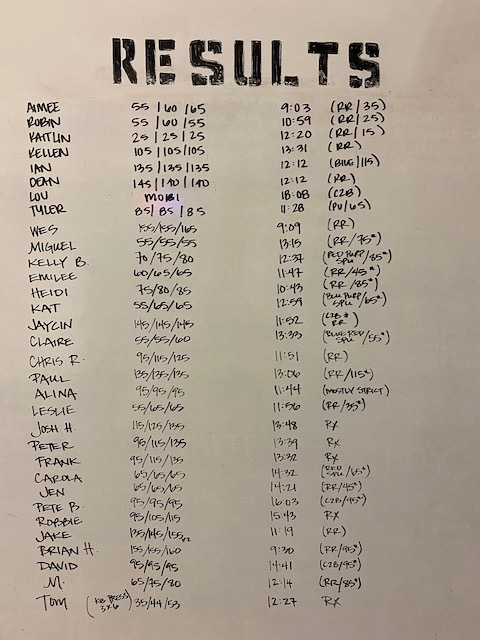 RESULTS
AIMEE 55 / 60 / 65 9:03 (RR/35)
ROBIN 55 / 60 / 55 10:59 (RR/25)
KAITLIN 25 / 25 / 25 12:20 (RR/15)
KELLEN 105 / 105 / 105 13:31 (RR)
IAN 135 / 135 / 135 12:12 (BLUE/115)
DEAN 145 / 140 / 140 12:12 (RR)
LOU MOBI 18:08 (C2B)
TYLER 85 / 85 / 85 11:28 (PU/65)
WES 155/155/165 9:09 (RR)
MIGUEL 55/55/55 13:15 (RR/75#)
KELLY B. 70/75/80 12:37 (RED PURP SPU/85#)
EMILEE 60/65/65 11:47 (RR/45#)
HEIDI 75/80/85 10:43 (RR/85#)
KAT 55/65/65 12:59 (BLU PURP SPU/65#)
JAYCIN 145/145/145 11:52 (C2B # RR)
CLAIRE 55/55/60 13:33 (BLUE RED SPU/55#)
CHRIS R. 95/115/125 11:51 (RR)
PAUL 135/135/135 13:06 (RR/115#)
ALINA 95/95/95 11:44 (MOSTLY STRICT)
LESLIE 55/65/65 11:56 (RR/35#)
JOSH H. 115/125/135 13:48 RX
PETER 95/115/135 13:39 RX
FRANK 95/115/135 13:32 RX
CAROLA 65/65/65 14:32 (RED SPU/65#)
JEN 65/65/65 14:21 (RR/45#)
PETE B. 95/95/95 16:03 (C2B/95#)
ROBBIE 95/105/115 15:43 RX
JAKE 135/145/155 11:19 (RR)
BRIAN H. 155/155/160 9:30 (RR/95#)
DAVID 95/95/95 14:41 (C2B/95#)
M. 65/75/80 12:14 (RR/85#)
Tom (KB PRESS 3x6) 35/44/53 12:27 RX